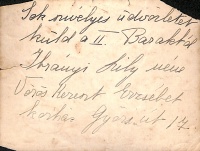 Sok szívélyes üdvözletet
küld a II. Barakból
Ibranyi Lily néne
Vörös Kereszt Erzsébet
kórház Gyáli út 17.